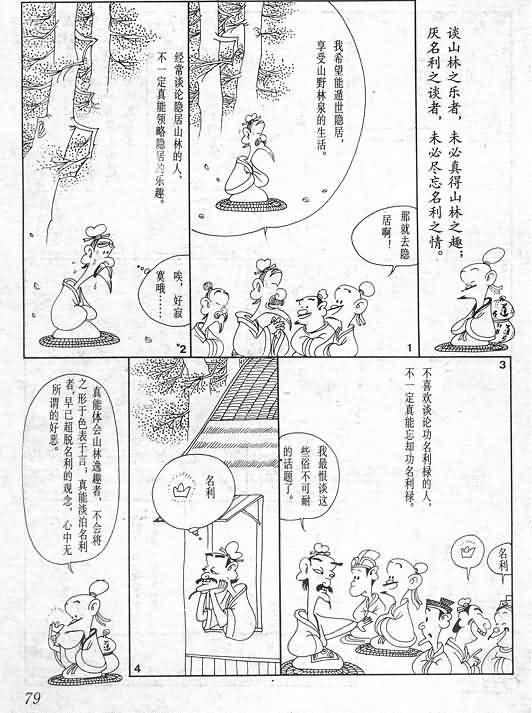 谈山林之乐者，未必真得山林之趣；
厌名利之谈者，未必尽忘名利之情。
我希望能遁世隐居，
享受山野林泉的生活。
那就去隐
居啊！
1
经常谈论隐居山林的人，
不一定真能领略隐居的乐趣。
唉，好寂
寞哦……
2
3
不喜欢谈论功名利禄的人，
不一定真能忘却功名利禄。
我最恨谈这
些俗不可耐
的话题了。
名利
名利
4
真能体会山林逸趣者，不会将
之形于色表于言；真能淡泊名利
者，早已超脱名利的观念，心中无
所谓的好恶。
道
79